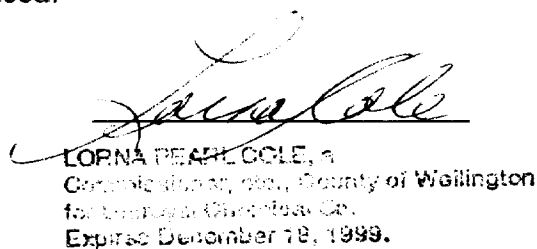 Lorna Cole
LORNA PEARL COLE, a
Commissioner, etc., County of Wellington
for Chemical Co.
Expires December 18, 1999.